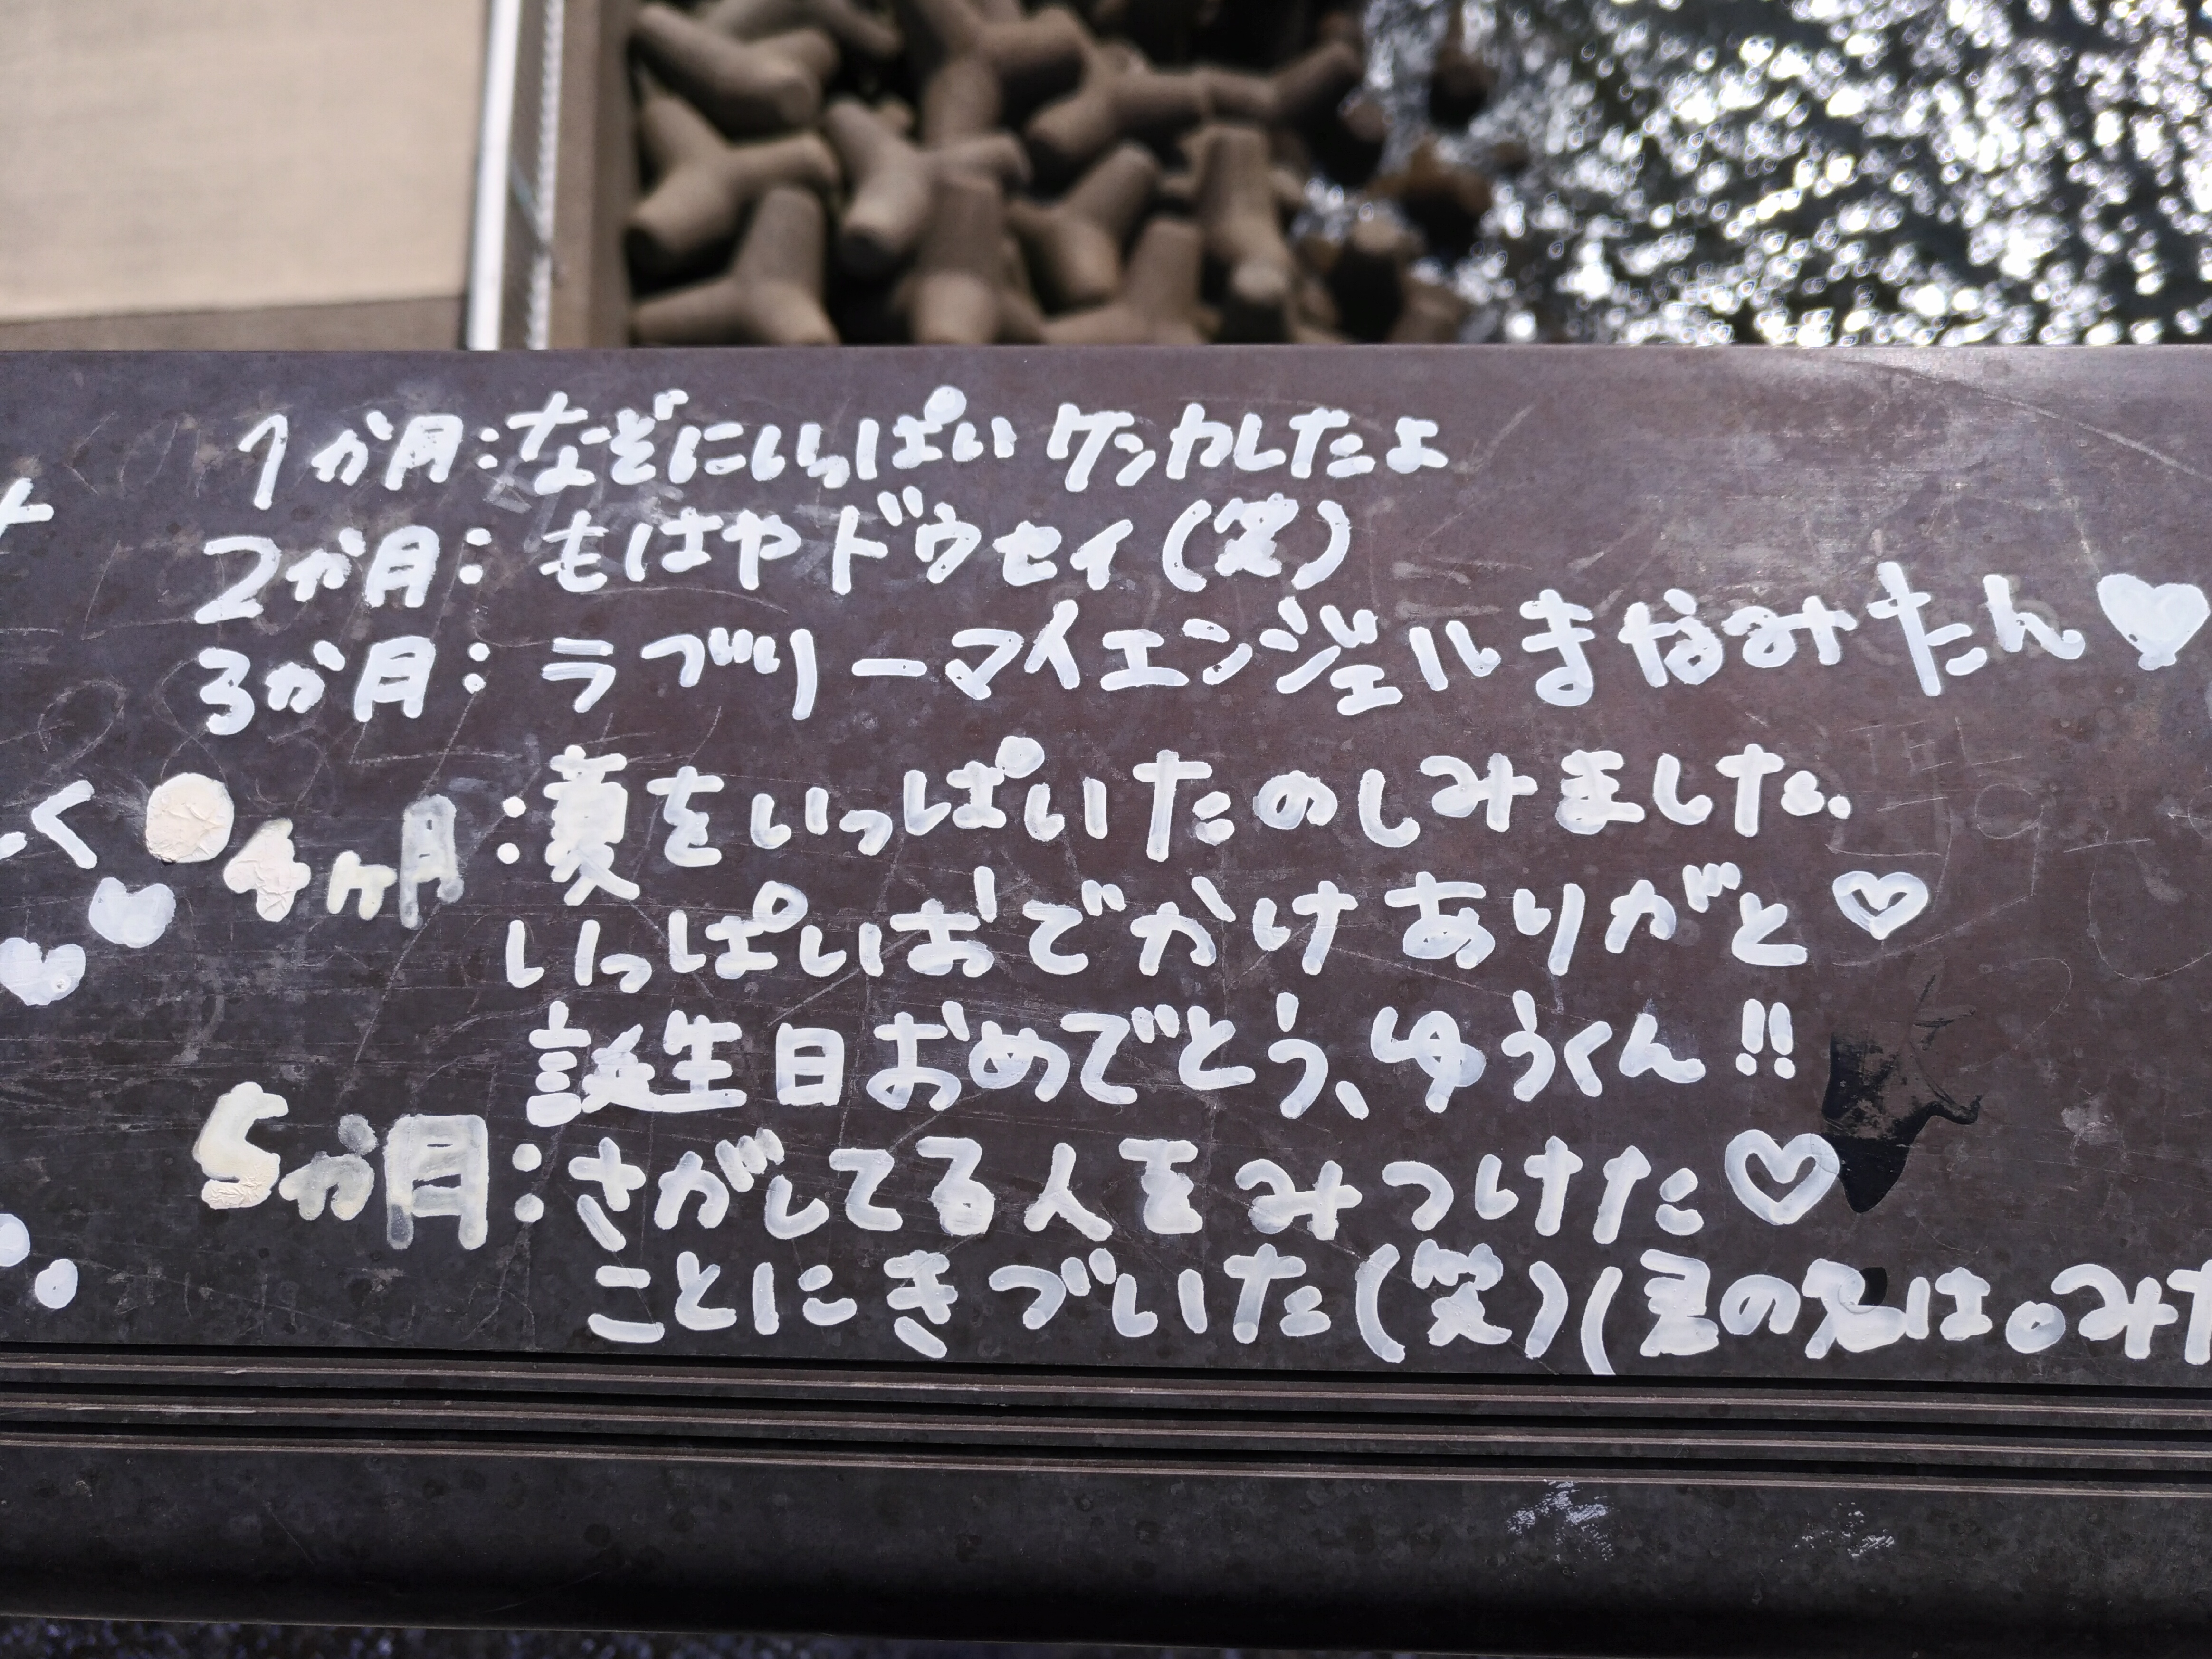 1か月:なぞにいっぱいケンカしたよ
2か月:もはやドウセイ(笑)
3か月:ラブリーマイエンジェルまなみたん♥
く
4ヶ月:夏をいっぱいたのしみました。
いっぱいおでかけありがと♡
誕生日おめでとう、ゆうくん!!
5か月:さがしてる人をみつけた♡
ことにきづいた(笑)(君の名は。みた